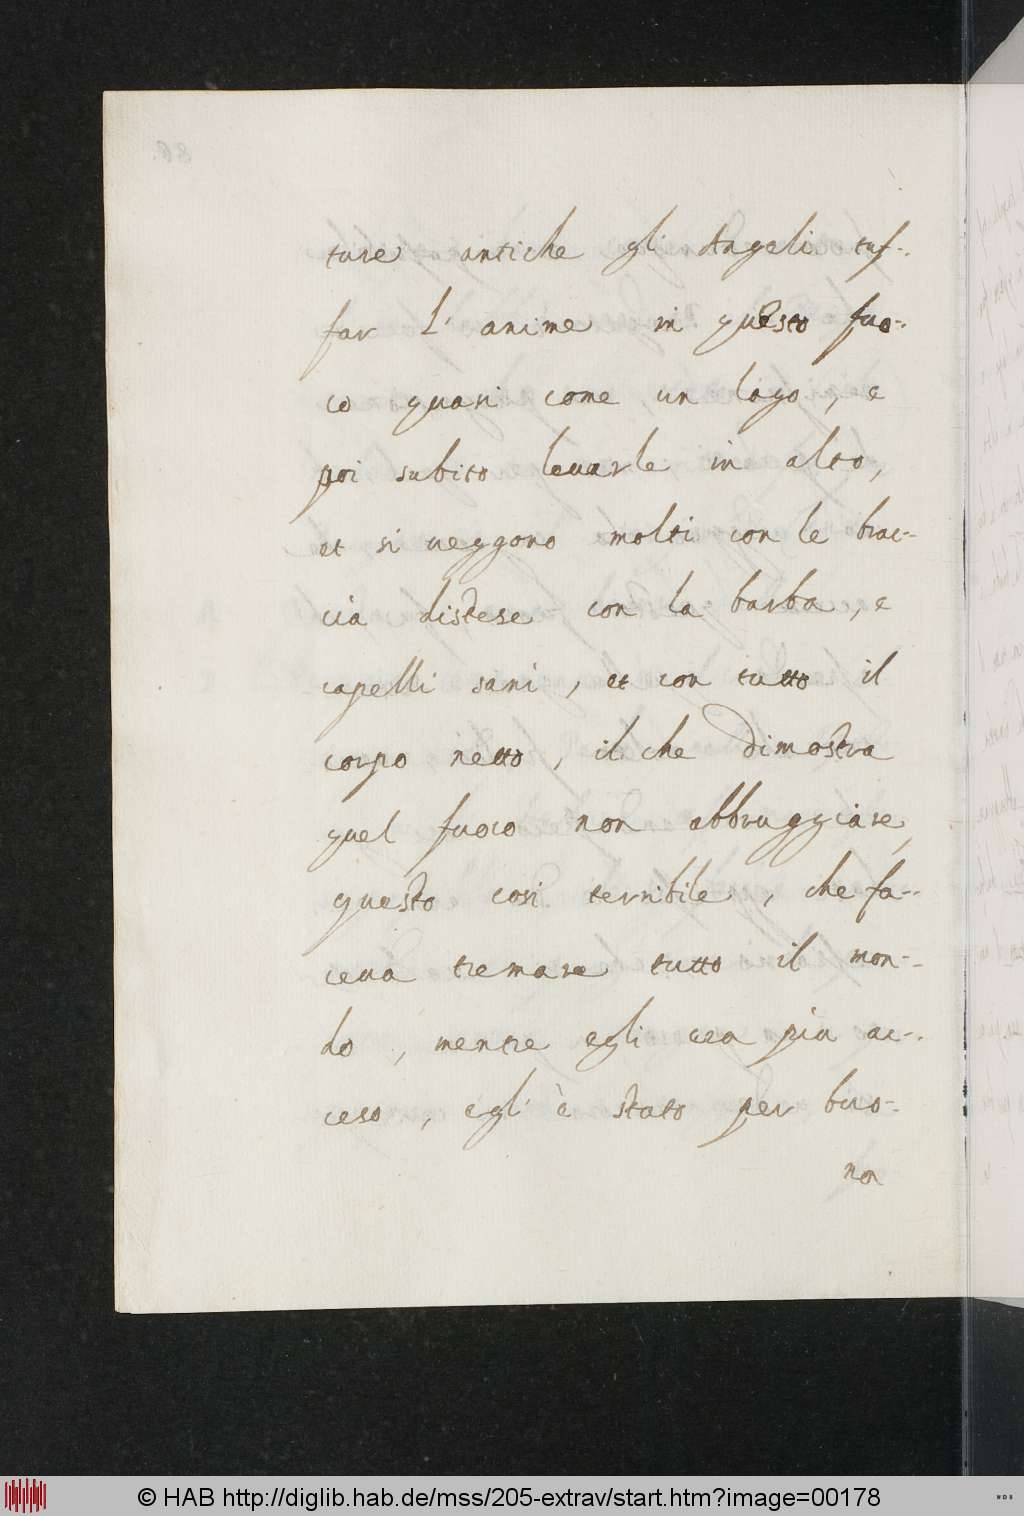 ture antiche gli Angeli tuf-
far L' anime in questo fuo-
co quasi come un lago, e
poi subito leuarle in alto,
et si ueggono molti con le brac-
cia distese con la barba, e
capelli sani, et con tutto il
corpo netto, il che dimostra
quel fuoco non abbruggiare,
questo cosi terribile, che fa-
ceua tremare tutto il mon-
do, mentre egli era piu ac-
ceso, egl' è stato per buo-
na
© HAB http://diglib.hab.de/mss/205-extrav/start.htm?image=00178